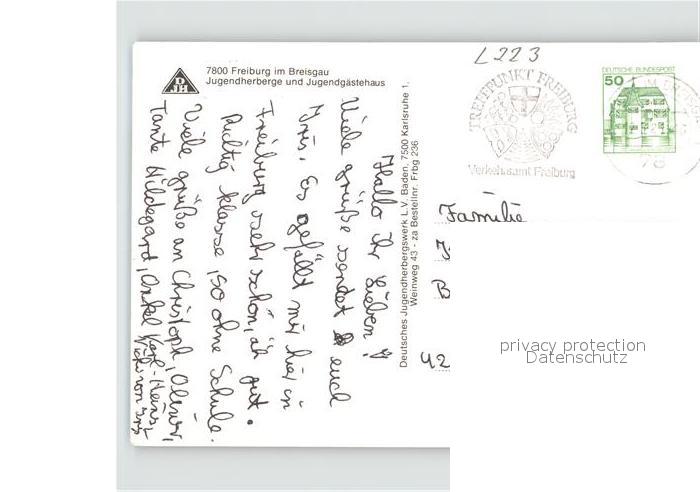 L223
7800 Freiburg im Breisgau
Jugendherberge und Jugendgästehaus
DJH
TREFFPUNKT FREIBURG
Verkehrsamt Freiburg
DEUTSCHE BUNDESPOST
50
78
Hallo Ihr Lieben!
Viele grüße sendet euch
Iris. Es gefällt mir hier in
Freiburg sehr schön, äh gut.
Richtig klasse, so ohne Schule.
Viele grüße an Christoph, Oliver,
Tante Hildegard, Onkel Karl-Heinz,
Deutsches Jugendherbergswerk L.V. Baden, 7500 Karlsruhe 1,
Weinweg 43 - za Bestellnr. Frbg 236
Familie
B
42
privacy protection
Datenschutz